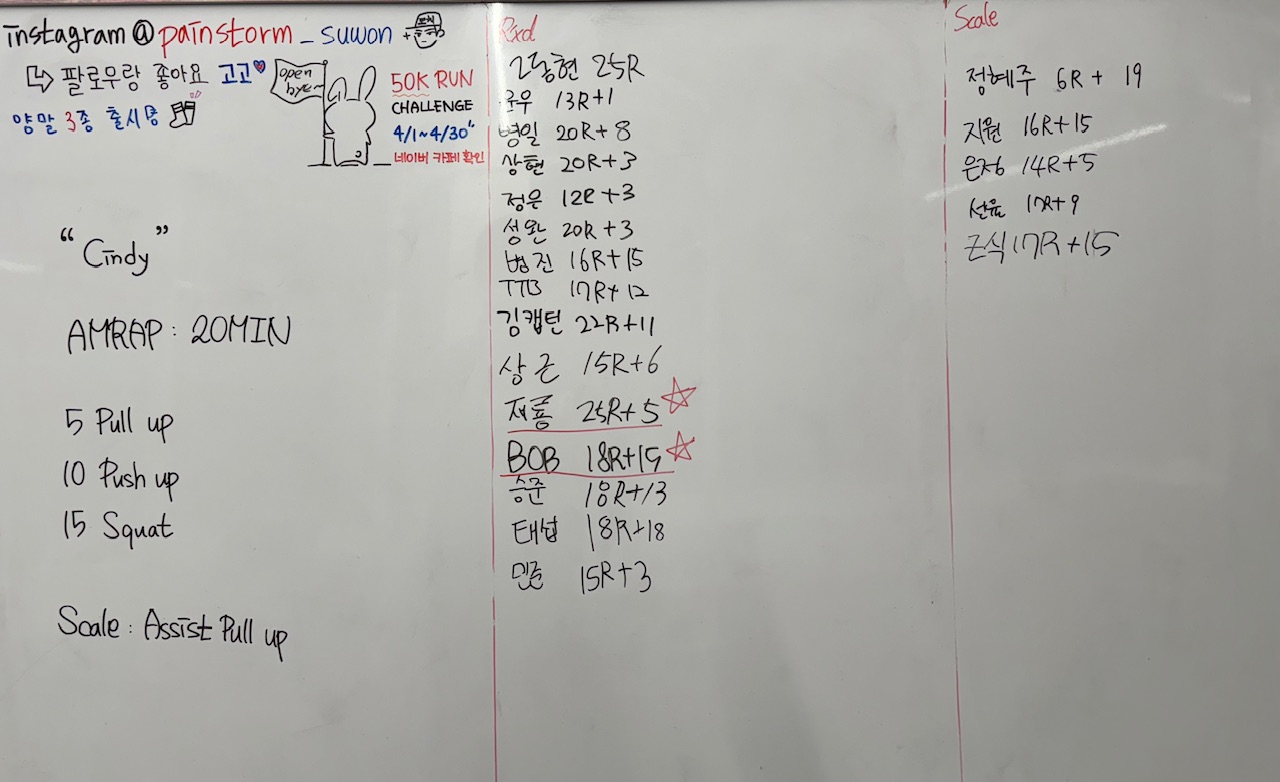 instagram@painstorm_suwon
팔로우랑 좋아요 고고
양말 3종 출시
open
bye~
50K RUN
CHALLENGE
4/1~4/30"
네이버 카페 확인
"Cindy"
AMRAP : 20MIN
5 Pull up
10 Push up
15 Squat
Scale : Assist Pull up
Rxd
25R
13R+1
병일 20R+8
상현 20R+3
정은 12R+3
성완 20R+3
병진 16R+15
TTB 17R+12
김캡틴 22R+11
상근 15R+6
재룡 25R+5
BOB 18R+15
승준 18R+13
태섭 18R+18
민준 15R+3
Scale
정혜주 6R + 19
지원 16R+15
은정 14R+5
선율 17R+9
근식 17R+15